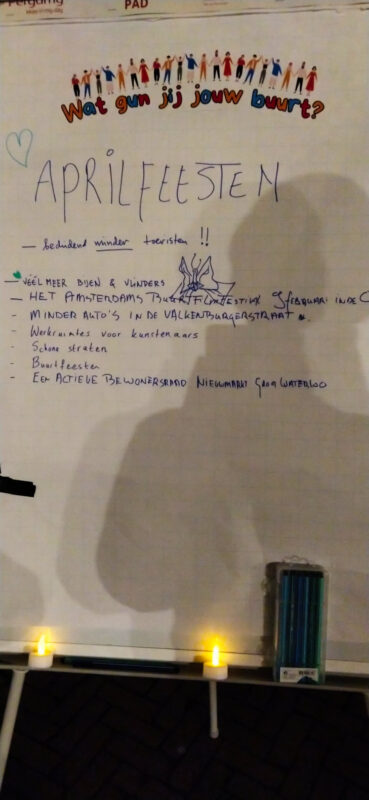 PAD
Wat gun jij jouw buurt?
APRILFEESTEN
— beduidend minder toeristen !!
— VEEL MEER BIJEN & VLINDERS
— HET AMSTERDAMS BUURTFILMFESTIVAL 9 FEBRUARI IN DE
- MINDER AUTO'S IN DE VALKENBURGERSTRAAT
- Werkruimtes voor kunstenaars
- Schone straten
- Buurtfeesten
- EEN ACTIEVE BEWONERSRAAD NIEUWMARKT GROOT WATERLOO